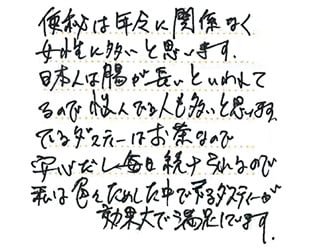 便秘は年令に関係なく
女性に多いと思います。
日本人は腸が長いといわれて
るので悩んでる人も多いと思います。
でるダスティーはお茶なので
安心だし毎日続けられるので
私は色々ためした中ででるダスティーが
効果大で満足しています。